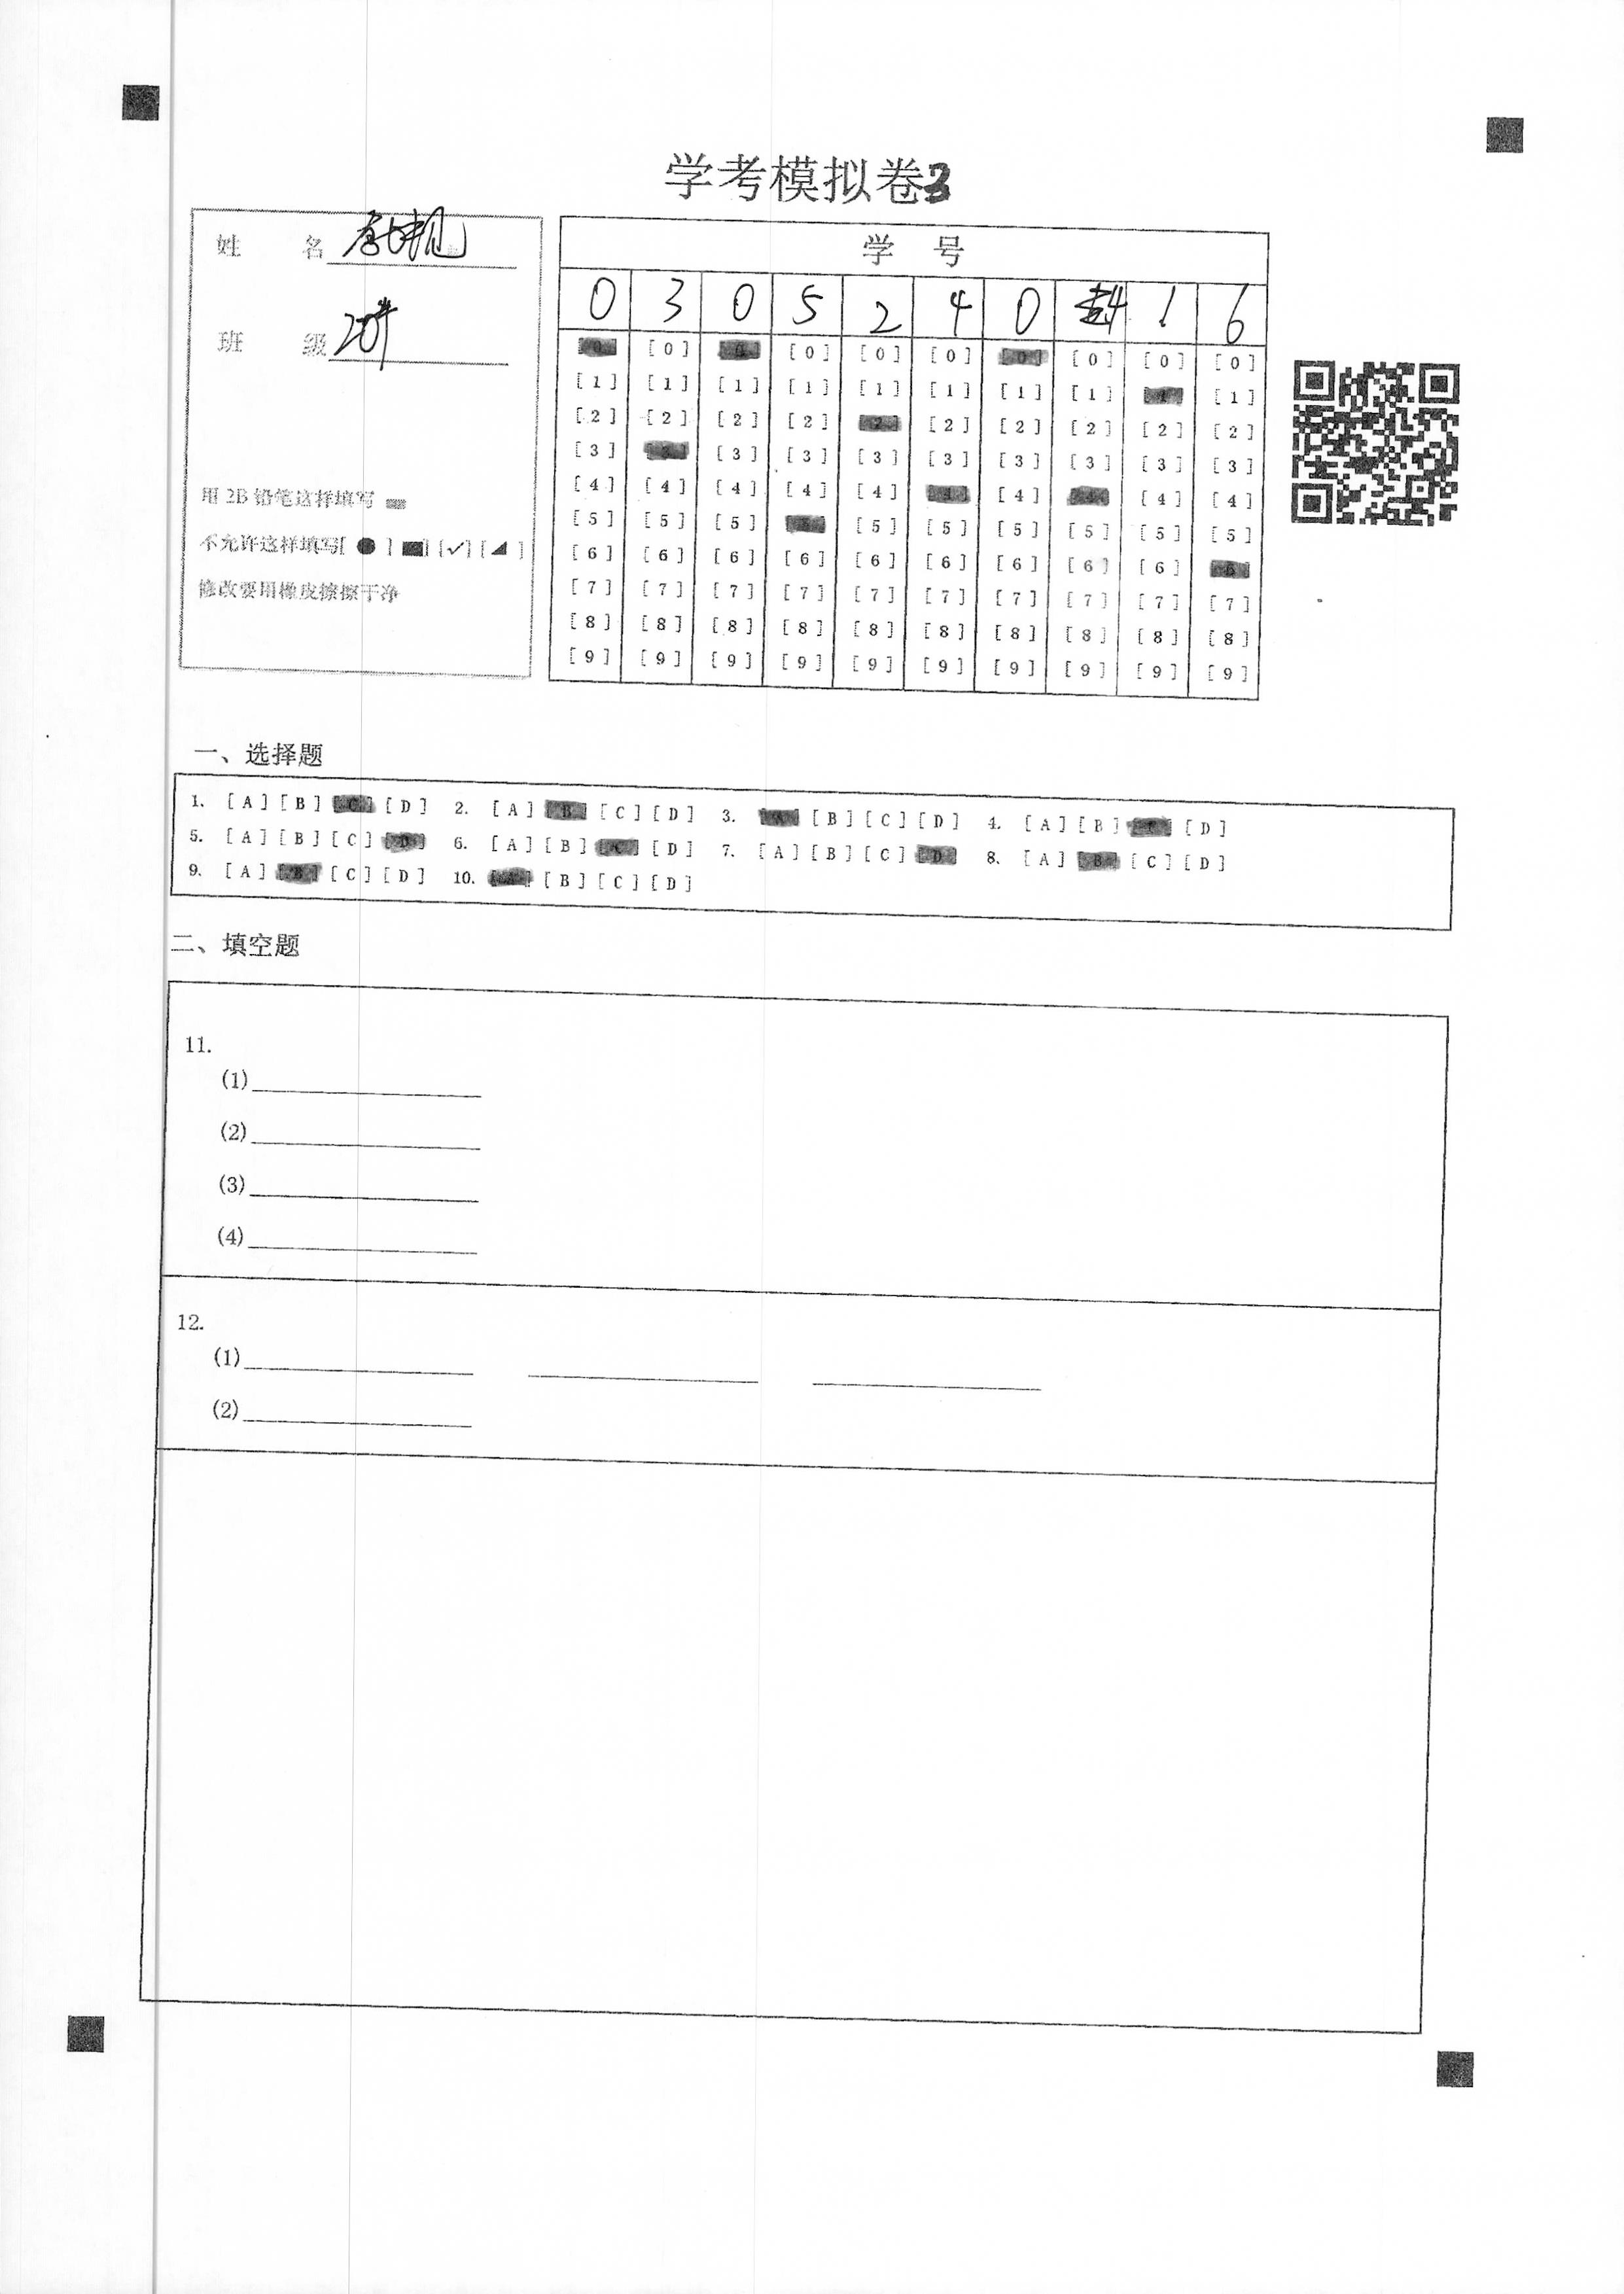 学考模拟卷3
姓 名
班 级 204
用 2B 铅笔这样填写
不允许这样填写[ ● ] [■] [✓] [◢ ]
修改要用橡皮擦擦干净
学 号
0 3 0 5 2 4 0 4 1 6
[0] [0] [0] [0] [0] [0] [0] [0] [0] [0]
[1] [1] [1] [1] [1] [1] [1] [1] [1] [1]
[2] [2] [2] [2] [2] [2] [2] [2] [2] [2]
[3] [3] [3] [3] [3] [3] [3] [3] [3] [3]
[4] [4] [4] [4] [4] [4] [4] [4] [4] [4]
[5] [5] [5] [5] [5] [5] [5] [5] [5] [5]
[6] [6] [6] [6] [6] [6] [6] [6] [6] [6]
[7] [7] [7] [7] [7] [7] [7] [7] [7] [7]
[8] [8] [8] [8] [8] [8] [8] [8] [8] [8]
[9] [9] [9] [9] [9] [9] [9] [9] [9] [9]
一、选择题
1. [A] [B] [C] [D] 2. [A] [B] [C] [D] 3. [A] [B] [C] [D] 4. [A] [B] [C] [D]
5. [A] [B] [C] [D] 6. [A] [B] [C] [D] 7. [A] [B] [C] [D] 8. [A] [B] [C] [D]
9. [A] [B] [C] [D] 10. [A] [B] [C] [D]
二、填空题
11.
(1)
(2)
(3)
(4)
12.
(1)
(2)